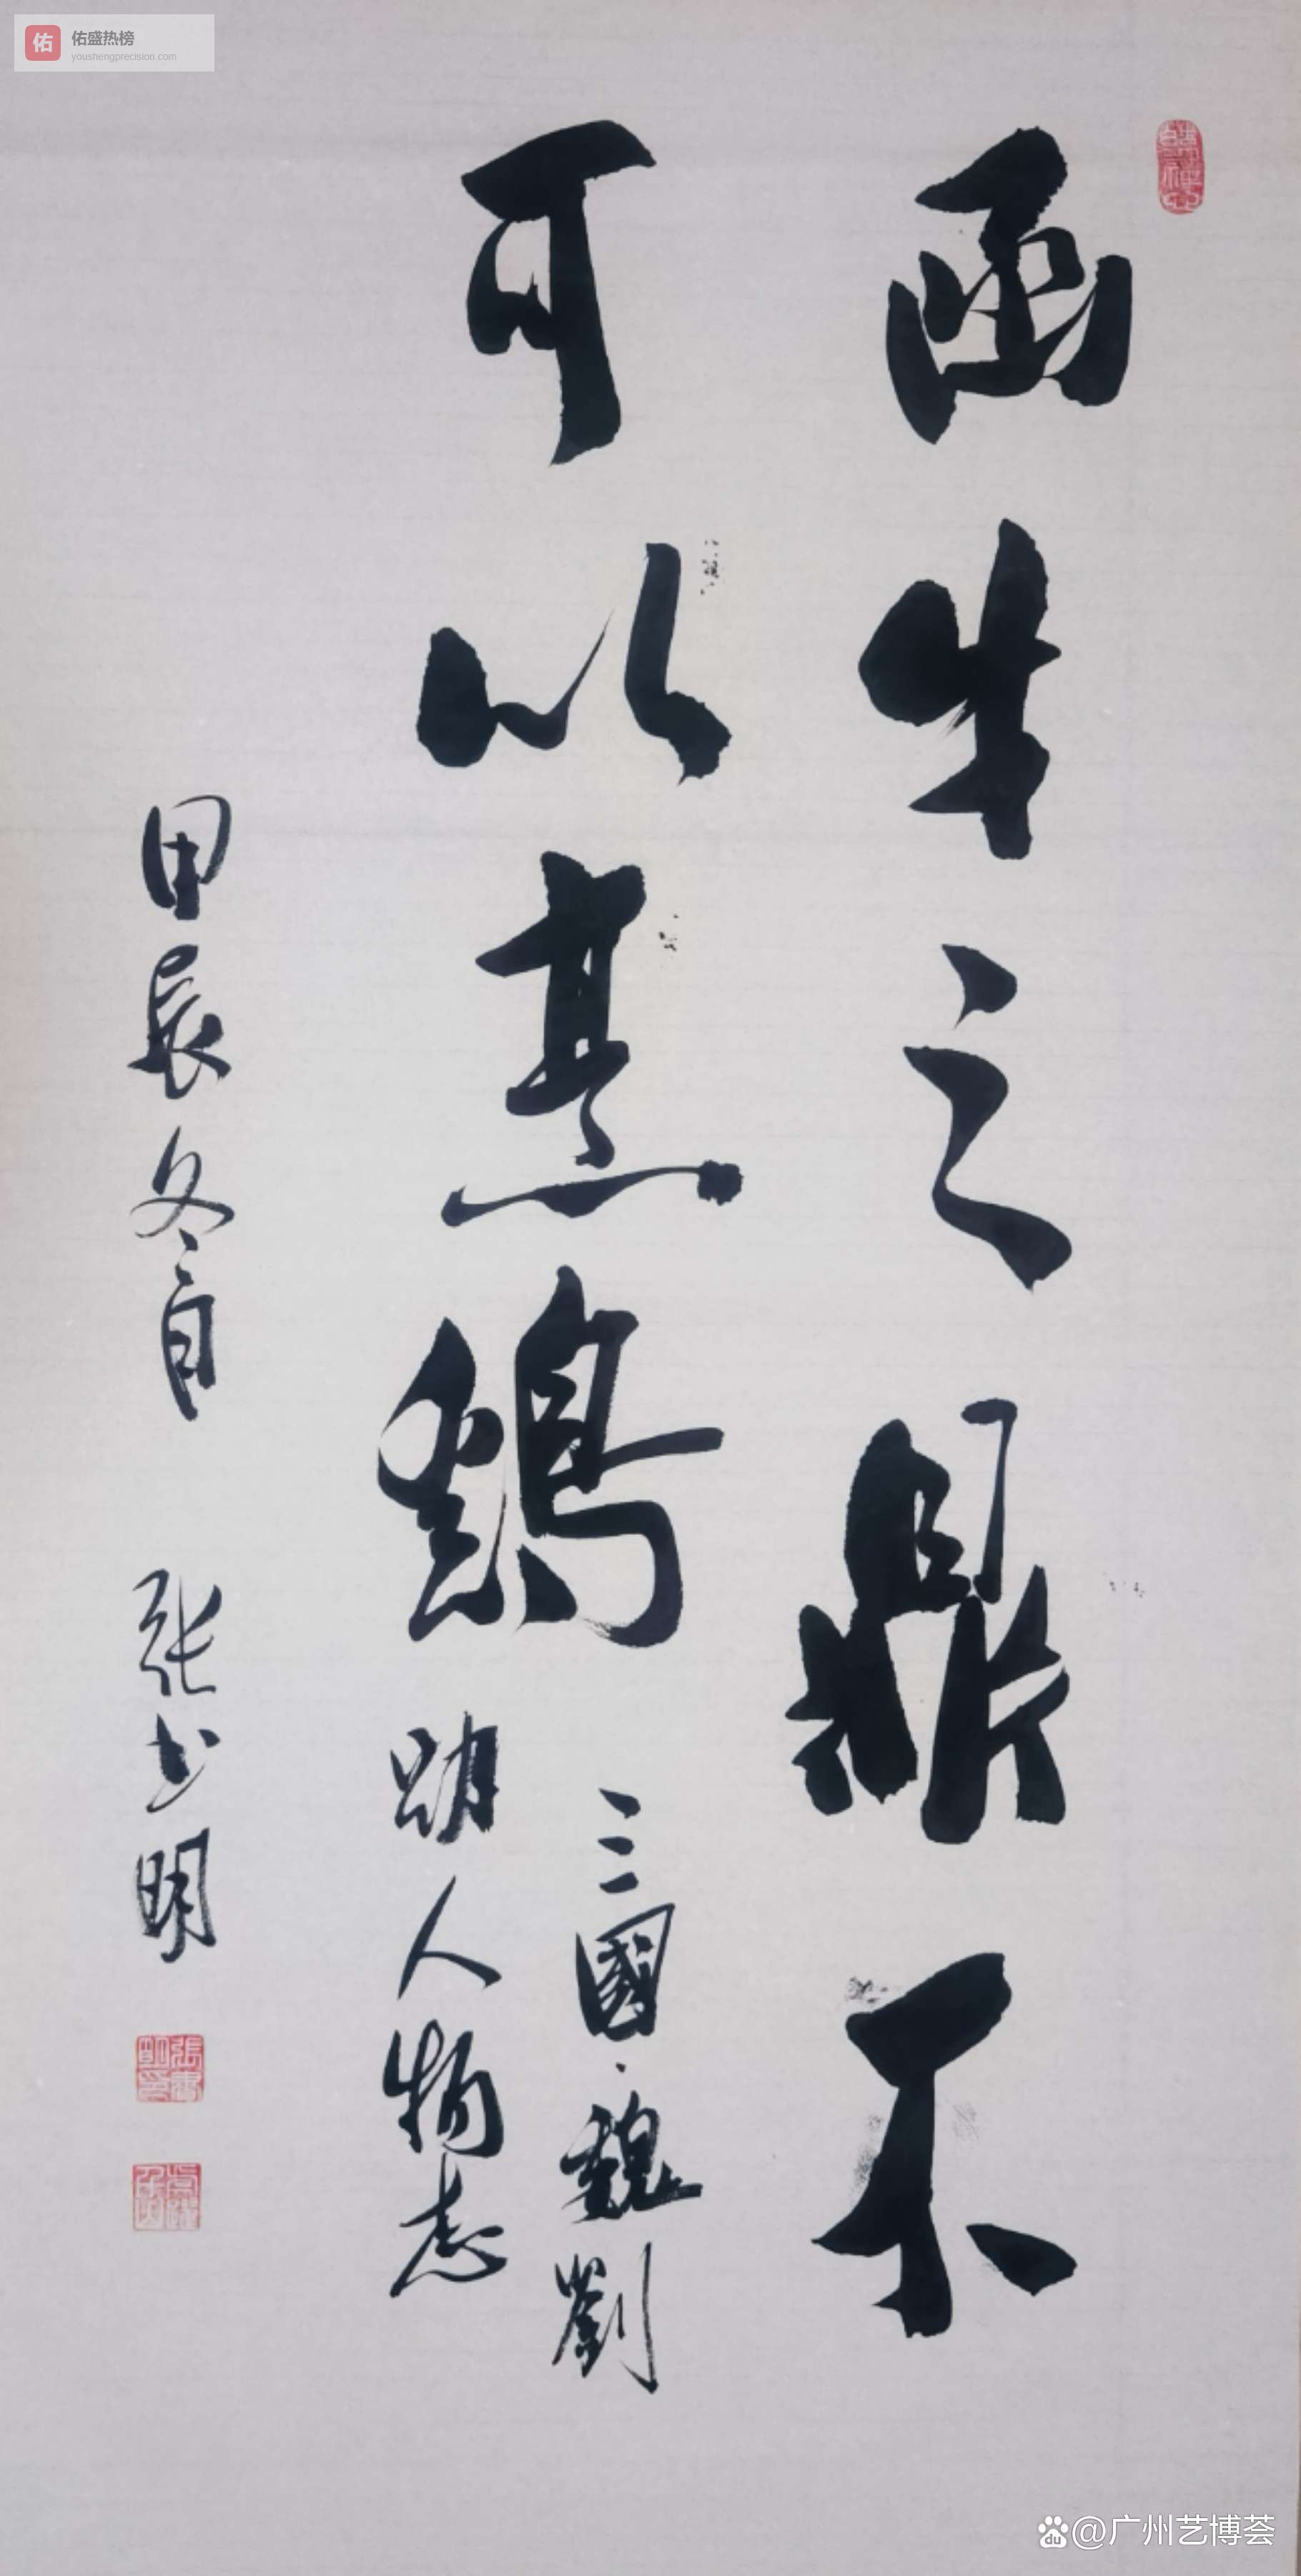 佑 佑盛热榜
youshengprecision.com
函牛之鼎不
可以烹鸡
三國·魏劉
劭人物志
甲辰冬月 张书明
du @广州艺博荟